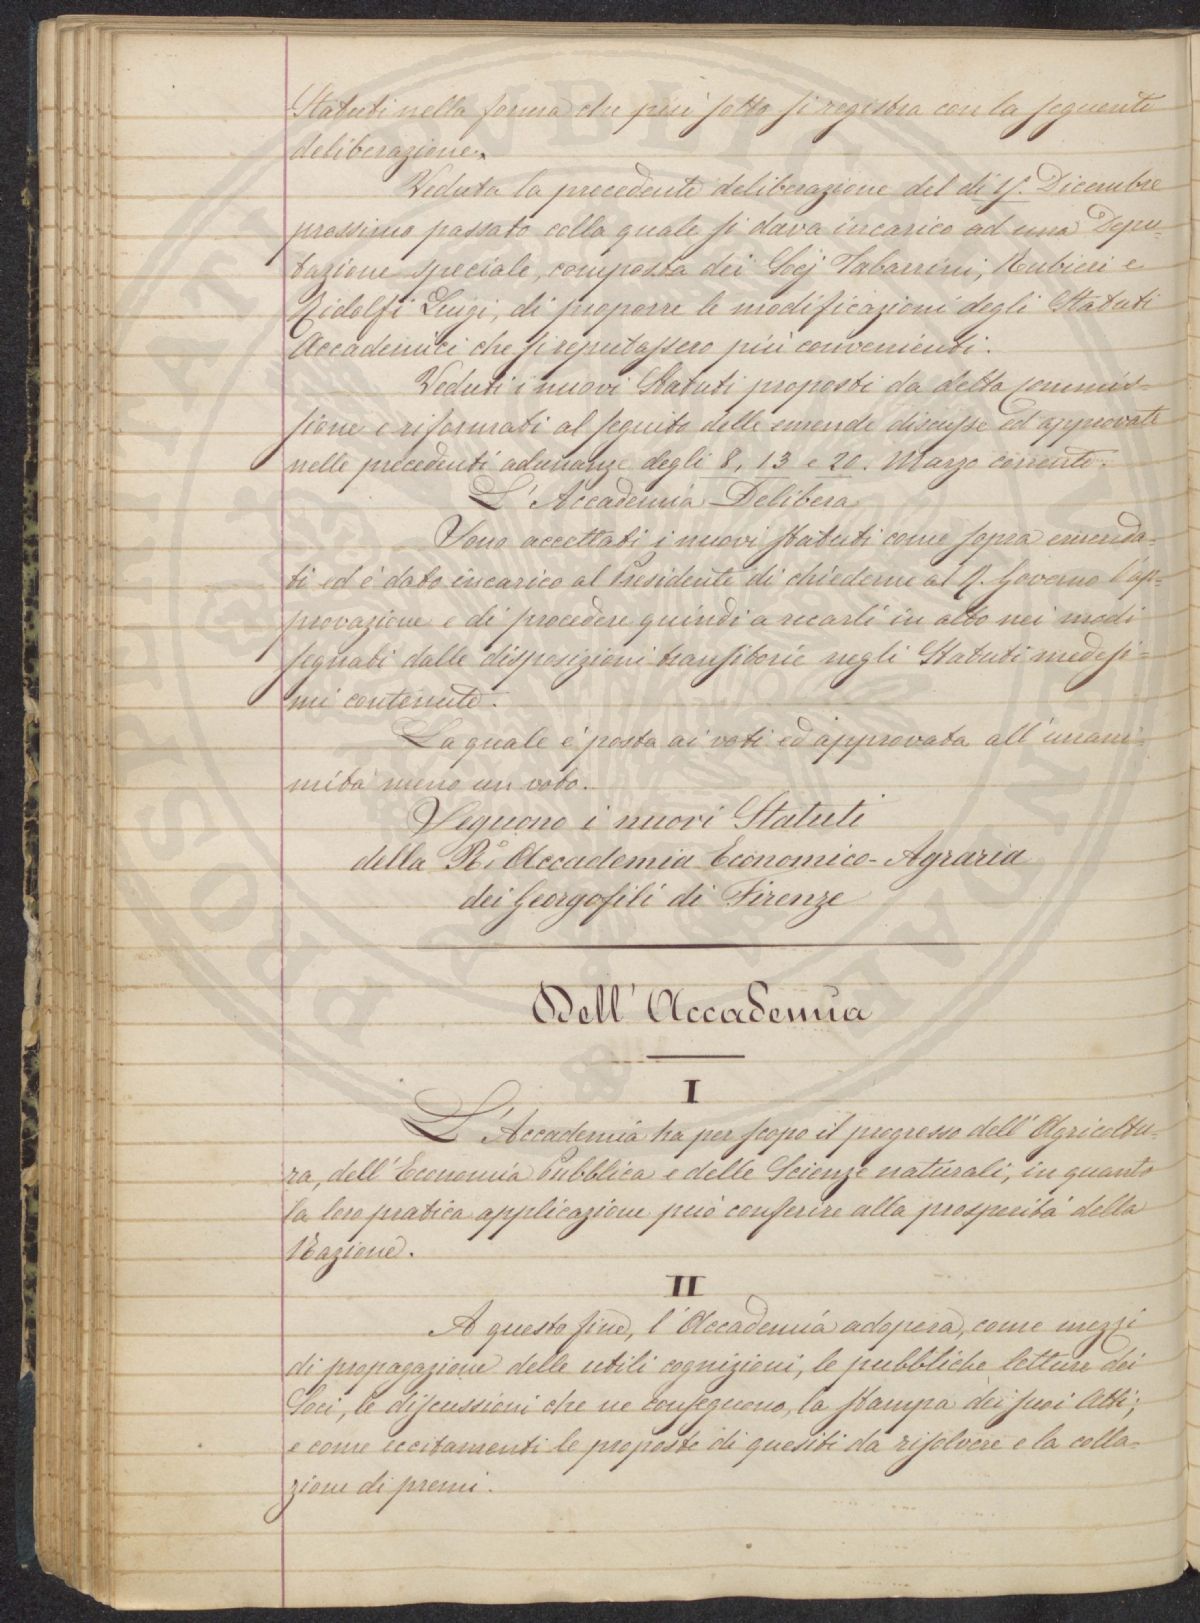 Statuti nella forma che più sotto si registra con la seguente
deliberazione.
Veduta la precedente deliberazione del dì Dicembre
prossimo passato colla quale si dava incarico ad una Depu-
tazione speciale, composta dei Socj Tabarrini, Rubieri e
Ridolfi Luigi, di proporre le modificazioni degli Statuti
Accademici che si reputassero più convenienti.
Veduti i nuovi Statuti proposti da detta commis-
sione e riformati al seguito delle emende discusse ed approvate
nelle precedenti adunanze degli 8, 13 e 20. Marzo corrente.
L'Accademia Delibera
Sono accettati i nuovi statuti come sopra emenda-
ti ed è dato incarico al Presidente di chiederne al R. Governo l'ap-
provazione e di procedere quindi a recarli in atto nei modi
segnati dalle disposizioni transitorie negli Statuti medesi-
mi contenute.
La quale è posta ai voti ed approvata all'unani-
mità meno un voto.
Seguono i nuovi Statuti
della R.ᵃ Accademia Economico-Agraria
dei Georgofili di Firenze
Dell'Accademia
I
L'Accademia ha per scopo il progresso dell'Agricoltu-
ra, dell'Economia Pubblica e delle Scienze naturali, in quanto
la loro pratica applicazione può conferire alla prosperità della
Nazione.
II
A questo fine, l'Accademia adopera, come mezzi
di propagazione delle utili cognizioni, le pubbliche letture dei
Soci, le discussioni che ne conseguono, la stampa dei suoi Atti;
e come eccitamenti le proposte di quesiti da risolvere e la colla-
zione di premi.